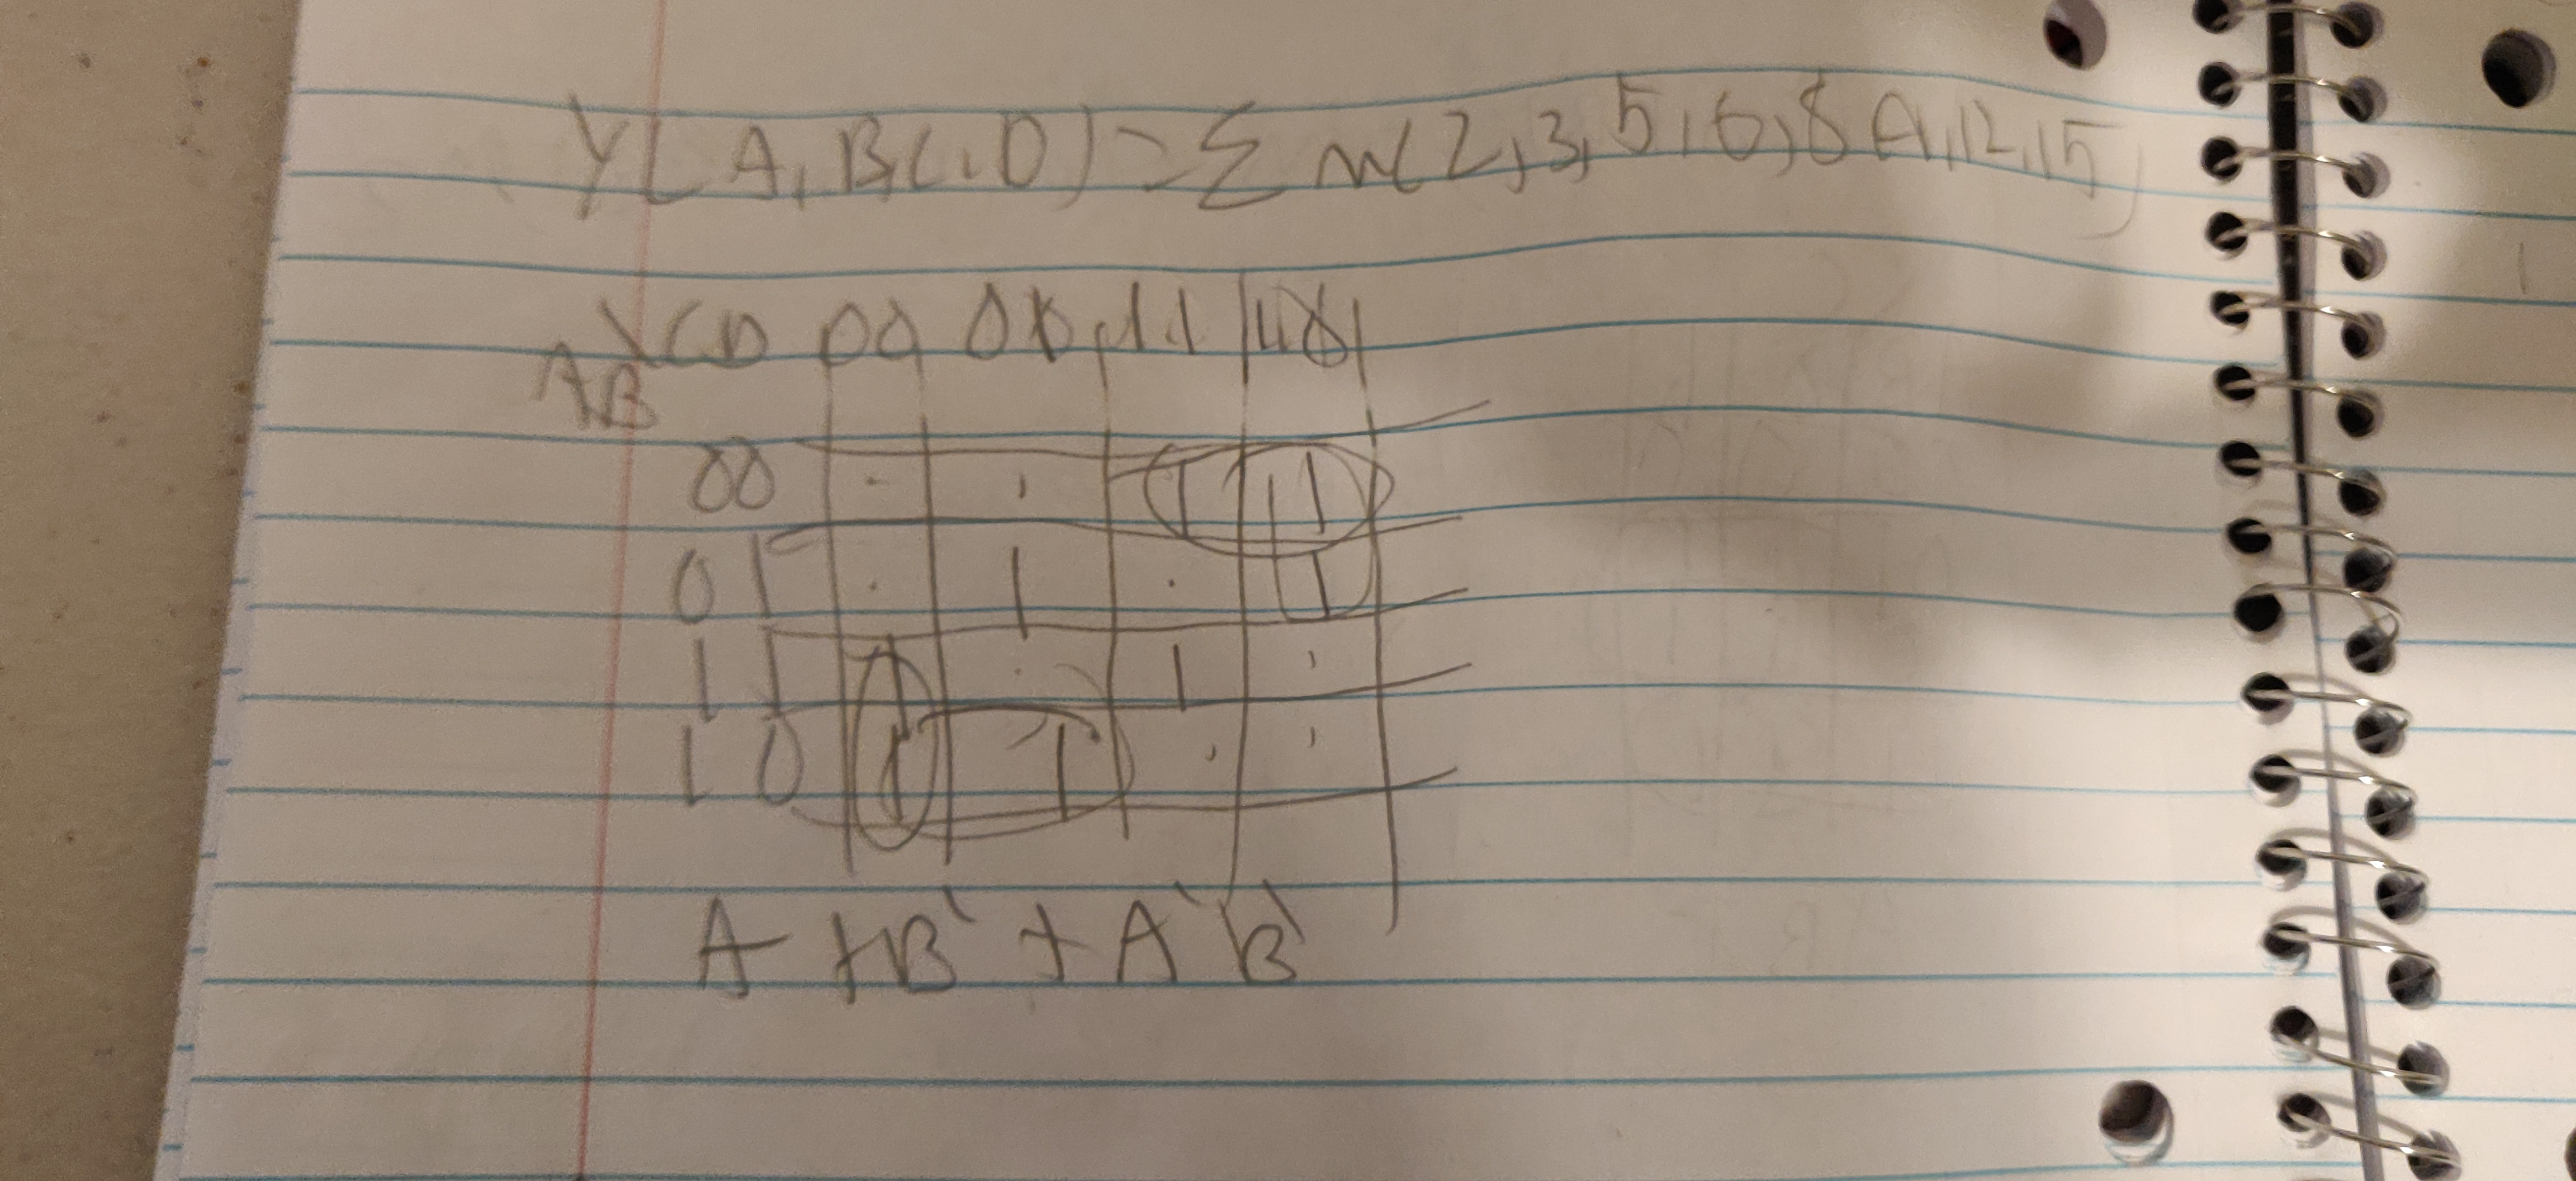 Y(A,B,C,D)=Σm(2,3,5,6,8A,12,15)
\CD 00 01 11 10
AB
00 . . 1 1
01 . 1 . 1
11 1 . 1 .
10 1 1 . .
A+B'+A'B'